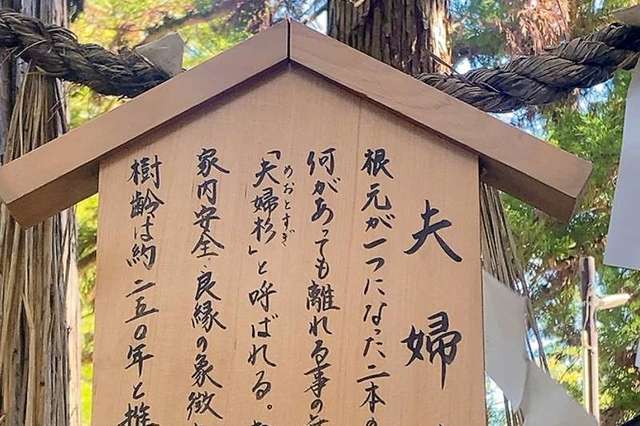 夫婦
根元が一つになった二本の
何があっても離れる事の
「夫婦杉」と呼ばれる。
めおとすぎ
家内安全・良縁の象徴
樹齢は約二五〇年と推